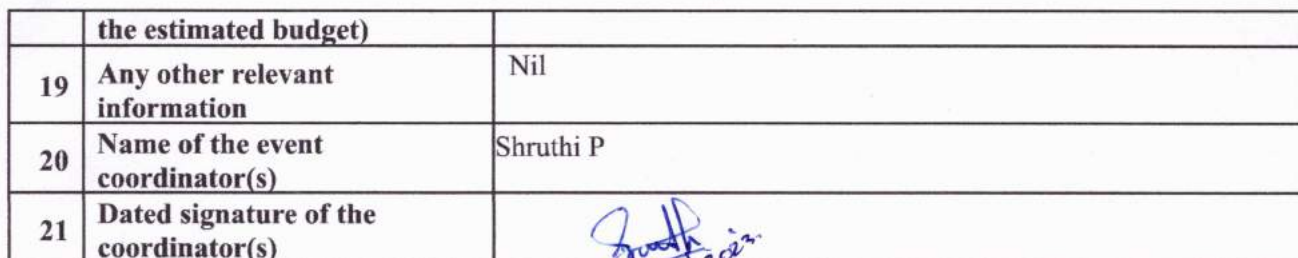 the estimated budget)
19 Any other relevant Nil
information
20 Name of the event Shruthi P
coordinator(s)
21 Dated signature of the
coordinator(s)